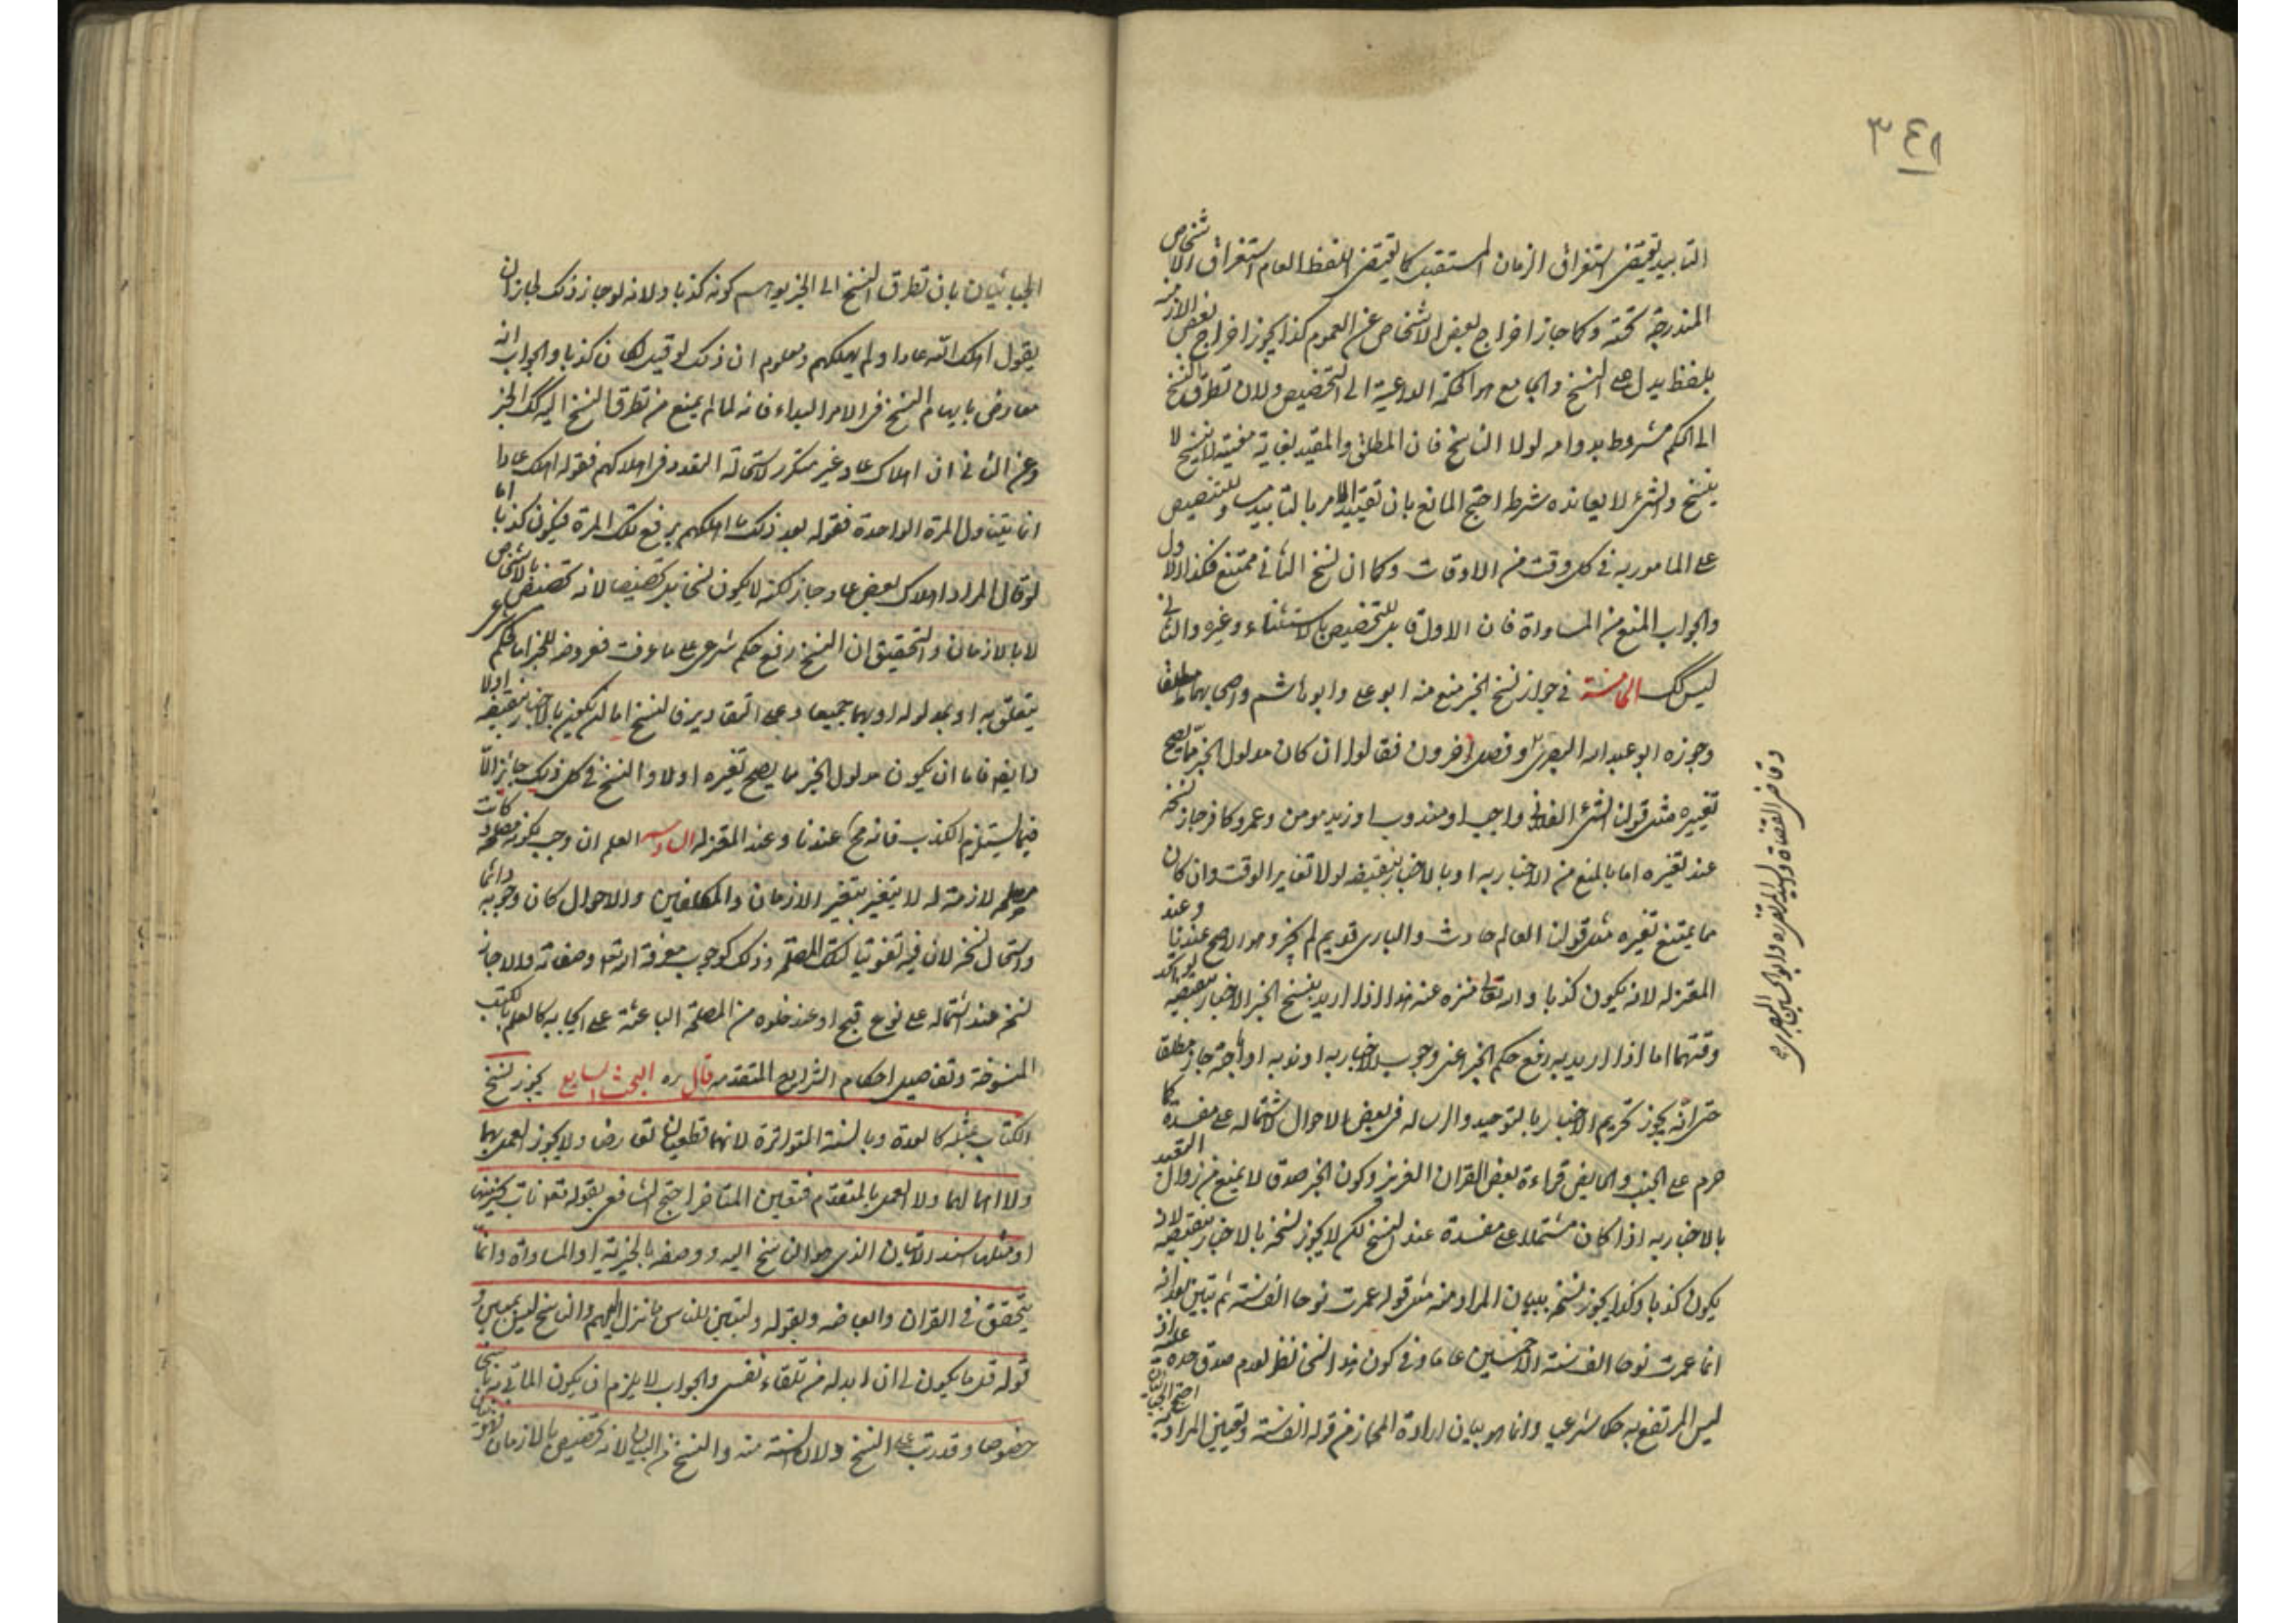 ٣٤٨
التابيد يقتضي استغراق الزمان المستقبل كما يقتضي اللفظ العام استغراق الاشخاص
المندرجة تحته وكما جاز اخراج بعض الاشخاص عن العموم كذا يجوز اخراج بعض الازمنة
بلفظ يدل على النسخ والجامع هو الحكمة الداعية الى التخصيص ولان تطرق النسخ
الى الحكم مشروط بدوامه لولا الناسخ فان المطلق والمقيد بغاية معينة لا ينسخ لا
ينسخ والشئ لا يعانده شرط احتج المانع بان تقييد الامر بالتابيد للتنصيص
على المامور به في كل وقت من الاوقات وكما ان نسخ الثاني ممتنع فكذا الاول
والجواب المنع من المساواة فان الاول قابل للتخصيص بالاستثناء وغيره والثاني
ليس كك الخامسة في جواز نسخ الخبر منع منه ابو على وابو هاشم واصحابهما مطلقا
وجوزه ابو عبد الله البصري وفصل اخرون فقالوا ان كان مدلول الخبر مما يصح
تغييره مثل قولنا الشئ الفلاني واجب او مندوب او زيد مومن وعمرو كافر جاز نسخه
عند تغيره اما بالمنع من الاخبار به او بالاخبار بنقيضه لولا تغاير الوقت وان كان
مما يمتنع تغيره مثل قولنا العالم حادث والباري قديم لم يجز وهو الاصح عندنا وعند
المعتزلة لانه يكون كذبا والله تعالى منزه عنه هذا اذا اريد بنسخ الخبر الاخبار بنقيضه
وقتهما اما اذا اريد به رفع حكم الخبر اعنى وجوب الاخبار به او ندبه او اباحته جاز مطلقا
حتى انه يجوز تحريم الاخبار بالتوحيد والرسالة في بعض الاحوال لاشتماله على مفسدة كما
حرم على الجنب والحايض قراءة بعض القران العزيز وكون الخبر صدقا لا يمنع من زوال التعبد
بالاخبار به اذا كان مشتملا على مفسدة عند النسخ لكن لا يجوز نسخه بالاخبار بنقيضه لانه
يكون كذبا وكذا يجوز نسخه ببيان المراد منه مثل قوله عمرت نوحا الف سنة ثم تبين بعد انه
انما عمرت نوحا الف سنة الا خمسين عاما وفي كون هذا النسخ نظر لعدم صدق حده عليه اذ
ليس المرتفع به حكما شرعيا وانما هو بيان ارادة المجاز من قوله الف سنة وتعيين المراد به احتج الجبائيان
وقاضي القضاة والسيد المرتضى وابو الحسين البصري
الجبائيان بان تطرق النسخ الى الخبر يوهم كونه كذبا ولانه لو جاز ذلك لجاز ان
يقول اهلك الله عادا ولم يهلكهم ومعلوم ان ذلك لو قيل لكان كذبا والجواب انه
معارض بايهام النسخ في الامر البداء فانه لما لم يمنع من تطرق النسخ اليه كك الخبر
وعن الثاني ان اهلاك عاد غير متكرر لاستحالة التعدد في اهلاكهم فقوله اهلك عادا
انما يتناول المرة الواحدة فقوله بعد ذلك ما اهلكهم يرفع تلك المرة فيكون كذبا اما
لو قال المراد اهلاك بعض عاد جاز لكنه لا يكون نسخا بل تخصيصا لانه تخصيص بالاشخاص
لا بالازمان والتحقيق ان النسخ رفع حكم شرعي على ما عرفت فعروضه للخبر اما لحكم شرعى
يتعلق به او بمدلوله او بهما جميعا وعلى التقادير فالنسخ اما ان يكون بالاخبار بنقيضه اولا
وايضا فاما ان يكون مدلول الخبر مما يصح تغيره اولا والنسخ في كل ذلك جائز الا
فيما يستلزم الكذب فانه مح عندنا وعند المعتزلة السادسة العلم ان وجب لكونه مصلحة
لازمة له لا يتغير بتغير الازمان والمكلفين والاحوال كان وجوبه دائما
واستحال نسخه لان فيه تفويتا لتلك المصلحة وذلك كوجوب معرفة الله تعالى وصفاته والا جاز
نسخه عند اشتماله على نوع قبح او عند خلوه من المصلحة الباعثة على ايجابه كالعلم بالكتب
المنسوخة وتفاصيل احكام الشرايع المتقدمة قال ره البحث السابع يجوز نسخ
الكتاب بمثله كالعدة وبالسنة المتواترة لانهما قطعيان تعارضا ولا يجوز العمل بهما
ولا اهمالهما ولا العمل بالمتقدم فتعين المتاخر احتج الشافعي بقوله تعالى نات بخير منها
او مثلها اسند الاتيان الذي هو الناسخ اليه ووصفه بالخيرية او المساواة وانما
يتحقق في القران والعايضه وبقوله ولتبين للناس ما نزل اليهم والناسخ ليس بمبين و
قوله قل ما يكون لى ان ابدله من تلقاء نفسي والجواب لا يلزم ان يكون الماتى به ناسخا
خصوصا وقد رتب على النسخ ولان السنة منه والنسخ من البيان لانه تخصيص بالازمان